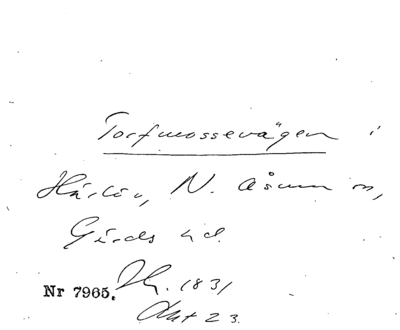 Torfmossevägen i
Härlöv, N. Åsum sn,
Gärds hd.
Nr 7965. 1831
Akt 23.